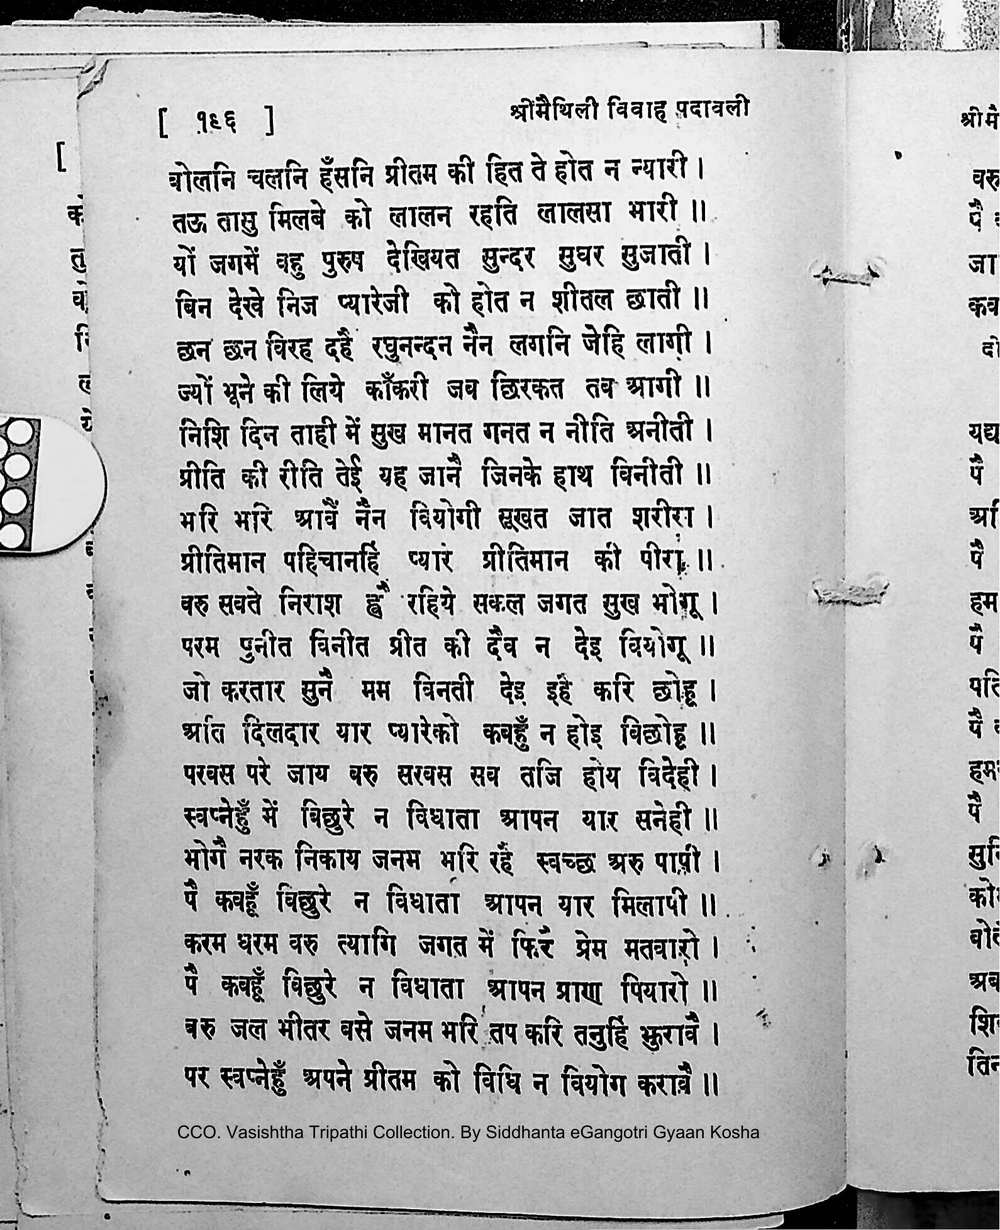 [ १९६ ] श्रीमैथिली विवाह पदावली
बोलनि चलनि हँसनि प्रीतम की हित ते होत न न्यारी ।
तऊ तासु मिलबे को लालन रहति लालसा भारी ॥
यों जगमें बहु पुरुष देखियत सुन्दर सुघर सुजाती ।
बिन देखे निज प्यारेजी को होत न शीतल छाती ॥
छन छन विरह दहै रघुनन्दन नैन लगनि जेहि लागी ।
ज्यों भूने की लिये काँकरी जब छिरकत तब आगी ॥
निशि दिन ताही में सुख मानत गनत न नीति अनीती ।
प्रीति की रीति तेई यह जानै जिनके हाथ विनीती ॥
भरि भरि आवैं नैन वियोगी सूखत जात शरीरा ।
प्रीतिमान पहिचानहिं प्यारे प्रीतिमान की पीरा ॥
बरु सबते निराश ह्वै रहिये सकल जगत सुख भोगू ।
परम पुनीत विनीत प्रीत की दैव न देइ वियोगू ॥
जो करतार सुनै मम विनती देइ इहै करि छोहू ।
अति दिलदार यार प्यारेको कबहुँ न होइ विछोहू ॥
परबस परे जाय बरु सरबस सब तजि होय विदेही ।
स्वप्नेहुँ में विछुरे न विधाता आपन यार सनेही ॥
भोगै नरक निकाय जनम भरि रहै स्वच्छ अरु पापी ।
पै कबहूँ विछुरे न विधाता आपन यार मिलापी ॥
करम धरम बरु त्यागि जगत में फिरै प्रेम मतवारो ।
पै कबहूँ विछुरे न विधाता आपन प्राण पियारो ॥
बरु जल भीतर बसे जनम भरि तप करि तनुहिं झुरावै ।
पर स्वप्नेहुँ अपने प्रीतम को विधि न वियोग करावै ॥
CCO. Vasishtha Tripathi Collection. By Siddhanta eGangotri Gyaan Kosha